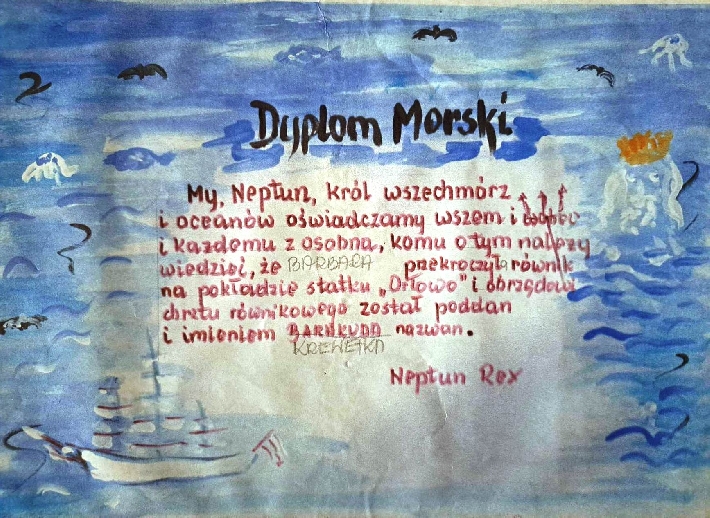 Dyplom Morski
My, Neptun, król wszechmórz
i oceanów oświadczamy wszem i
i każdemu z osobna, komu o tym należy
wiedzieć, że BARBARA przekroczyła równik
na pokładzie statku „Orłowo" i obrzędowi
chrztu równikowego został poddan
i imieniem nazwan.
KREWETKA
Neptun Rex